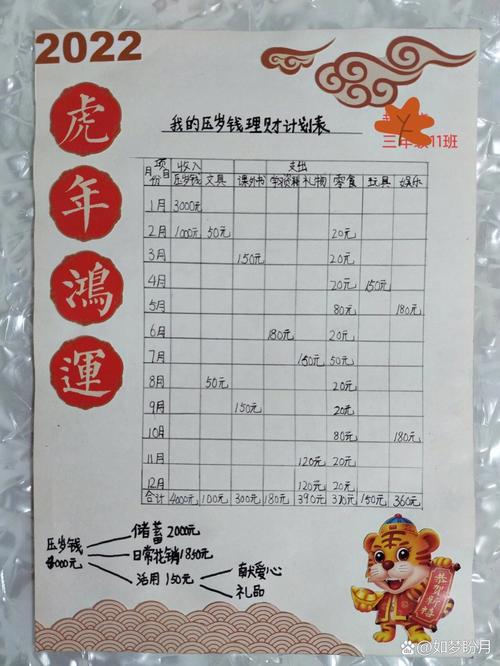 2022
虎年鸿運
我的压岁钱理财计划表
三年级11班
项目 收入 支出
月份 压岁钱 文具 课外书 礼物 零食 玩具 娱乐
1月 3000元
2月 1000元 50元 20元
3月 150元 20元
4月 20元 150元
5月 80元 180元
6月 180元 20元
7月 150元 50元
8月 50元 20元
9月 150元 20元
10月 80元 180元
11月 120元 20元
12月 120元 20元
合计 4000元 100元 300元 180元 390元 370元 150元 360元
储蓄2000元
压岁钱
4000元
日常花销1850元
活用150元
献爱心
礼品
恭贺新禧
@如梦盼月